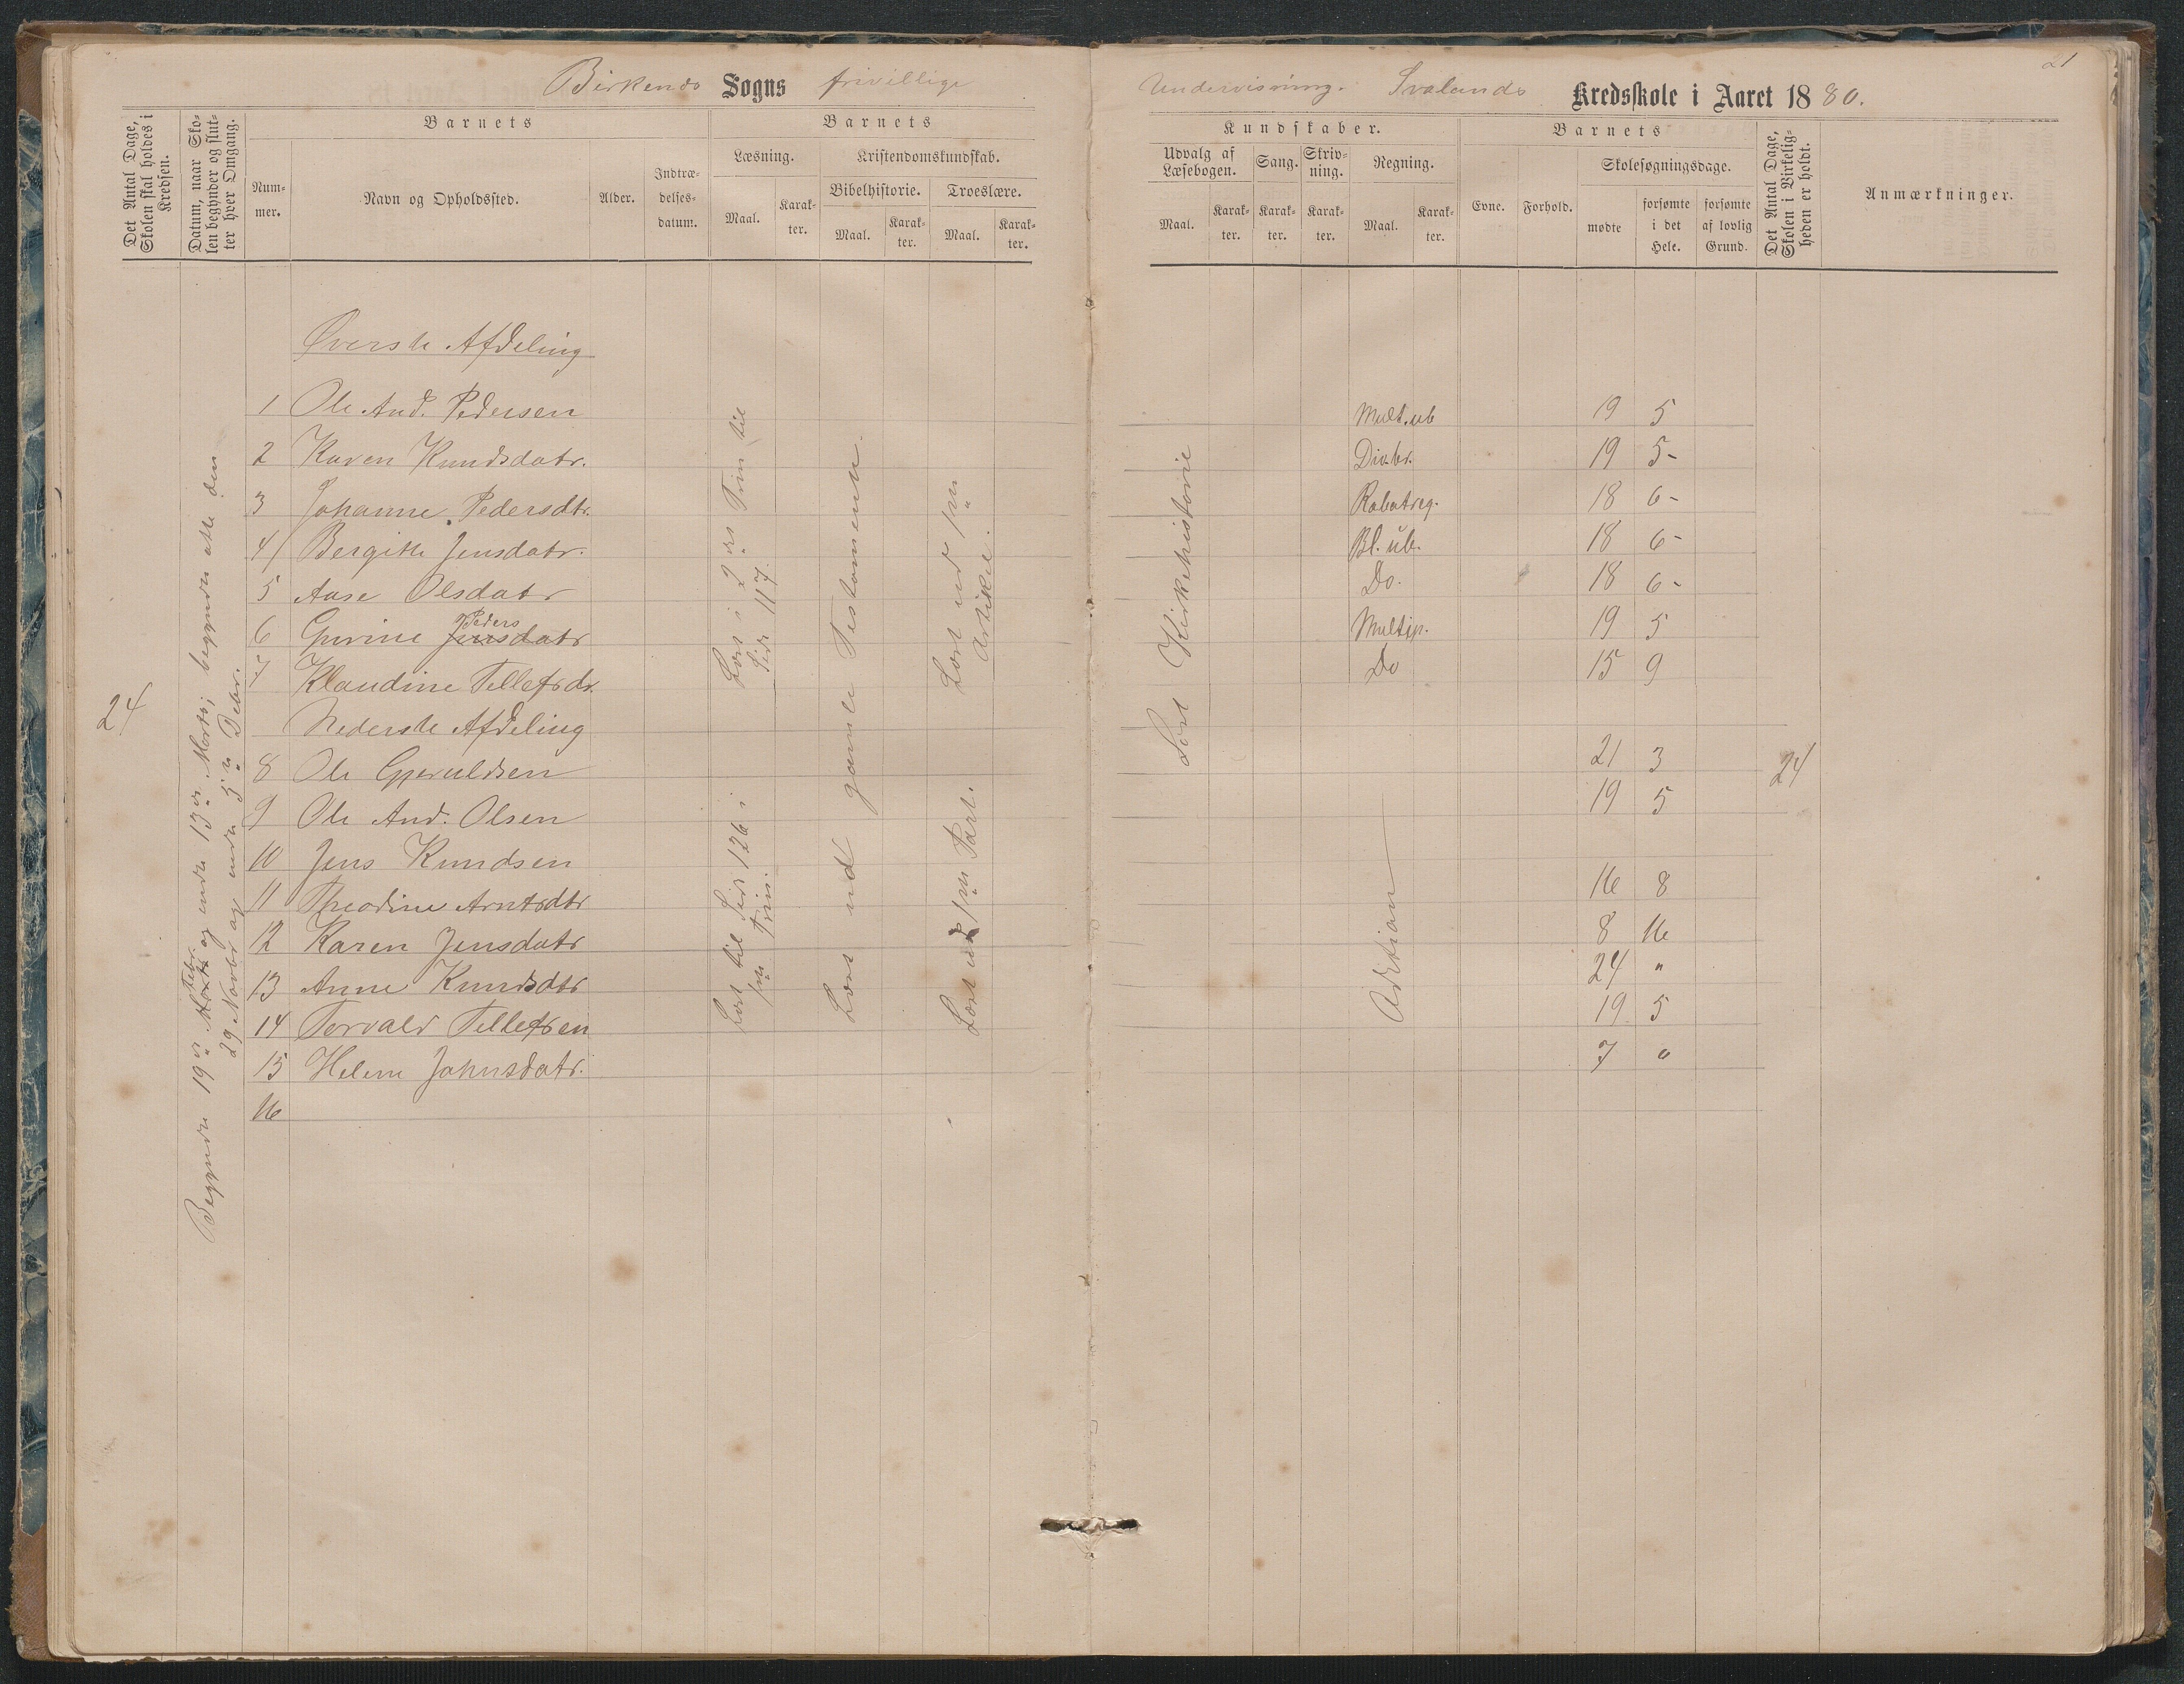 Birkenes Sogns frivillige
Det Antal Dage, Skolen skal holdes i Kredsen.
Datum, naar Skolen begynder og slutter hver Omgang.
Barnets
Nummer.
Navn og Opholdssted.
Alder.
Indtrædelsesdatum.
Barnets
Læsning.
Maal.
Karakter.
Kristendomskundskab.
Bibelhistorie.
Maal.
Karakter.
Troeslære.
Maal.
Karakter.
24
Begyndte 19de Febr. og endte 13de Marts; begyndte atter den
29 Novbr og endte 5te Debr.
Øverste Afdeling
1 Ole And. Pedersen
2 Karen Knudsdatr.
3 Johanne Pedersdtr.
4 Bergitte Jensdatr.
5 Aase Olsdatr
6 Gurine Jensdatr Peders
7 Klaudine Tellefsdr.
Nederste Afdeling
8 Ole Gjeruldsen
9 Ole And. Olsen
10 Jens Knudsen
11 Theodine Arntsdtr
12 Karen Jensdatr
13 Anne Knudsdtr
14 Torvald Tellefsen
15 Helene Johnsdatr.
16
Læst i 2det Trin til
Side 117.
Læst til Side 126 i
1ste Trin.
Læst ud gamle Testamente.
Læst ud 1ste
Artikel.
Læst ud 1ste Part.
21
Undervisning. Svalands Kredsskole i Aaret 1880.
Kundskaber.
Udvalg af Læsebogen.
Maal.
Karakter.
Sang.
Karakter.
Skrivning.
Karakter.
Regning.
Maal.
Karakter.
Barnets
Evne.
Forhold.
Skolesøgningsdage.
mødte
forsømte i det Hele.
forsømte af lovlig Grund.
Det Antal Dage, Skolen i Virkeligheden er holdt.
Anmærkninger.
Læst Kirkehistorie
Mult. ub 19 5
Div. br. 19 5-
Rabatreg. 18 6-
Bl. ub. 18 6-
Do. 18 6-
Multip. 19 5
Do 15 9
21 3
19 5
24
16 8
8 16
24 "
19 5
7 "
Addition